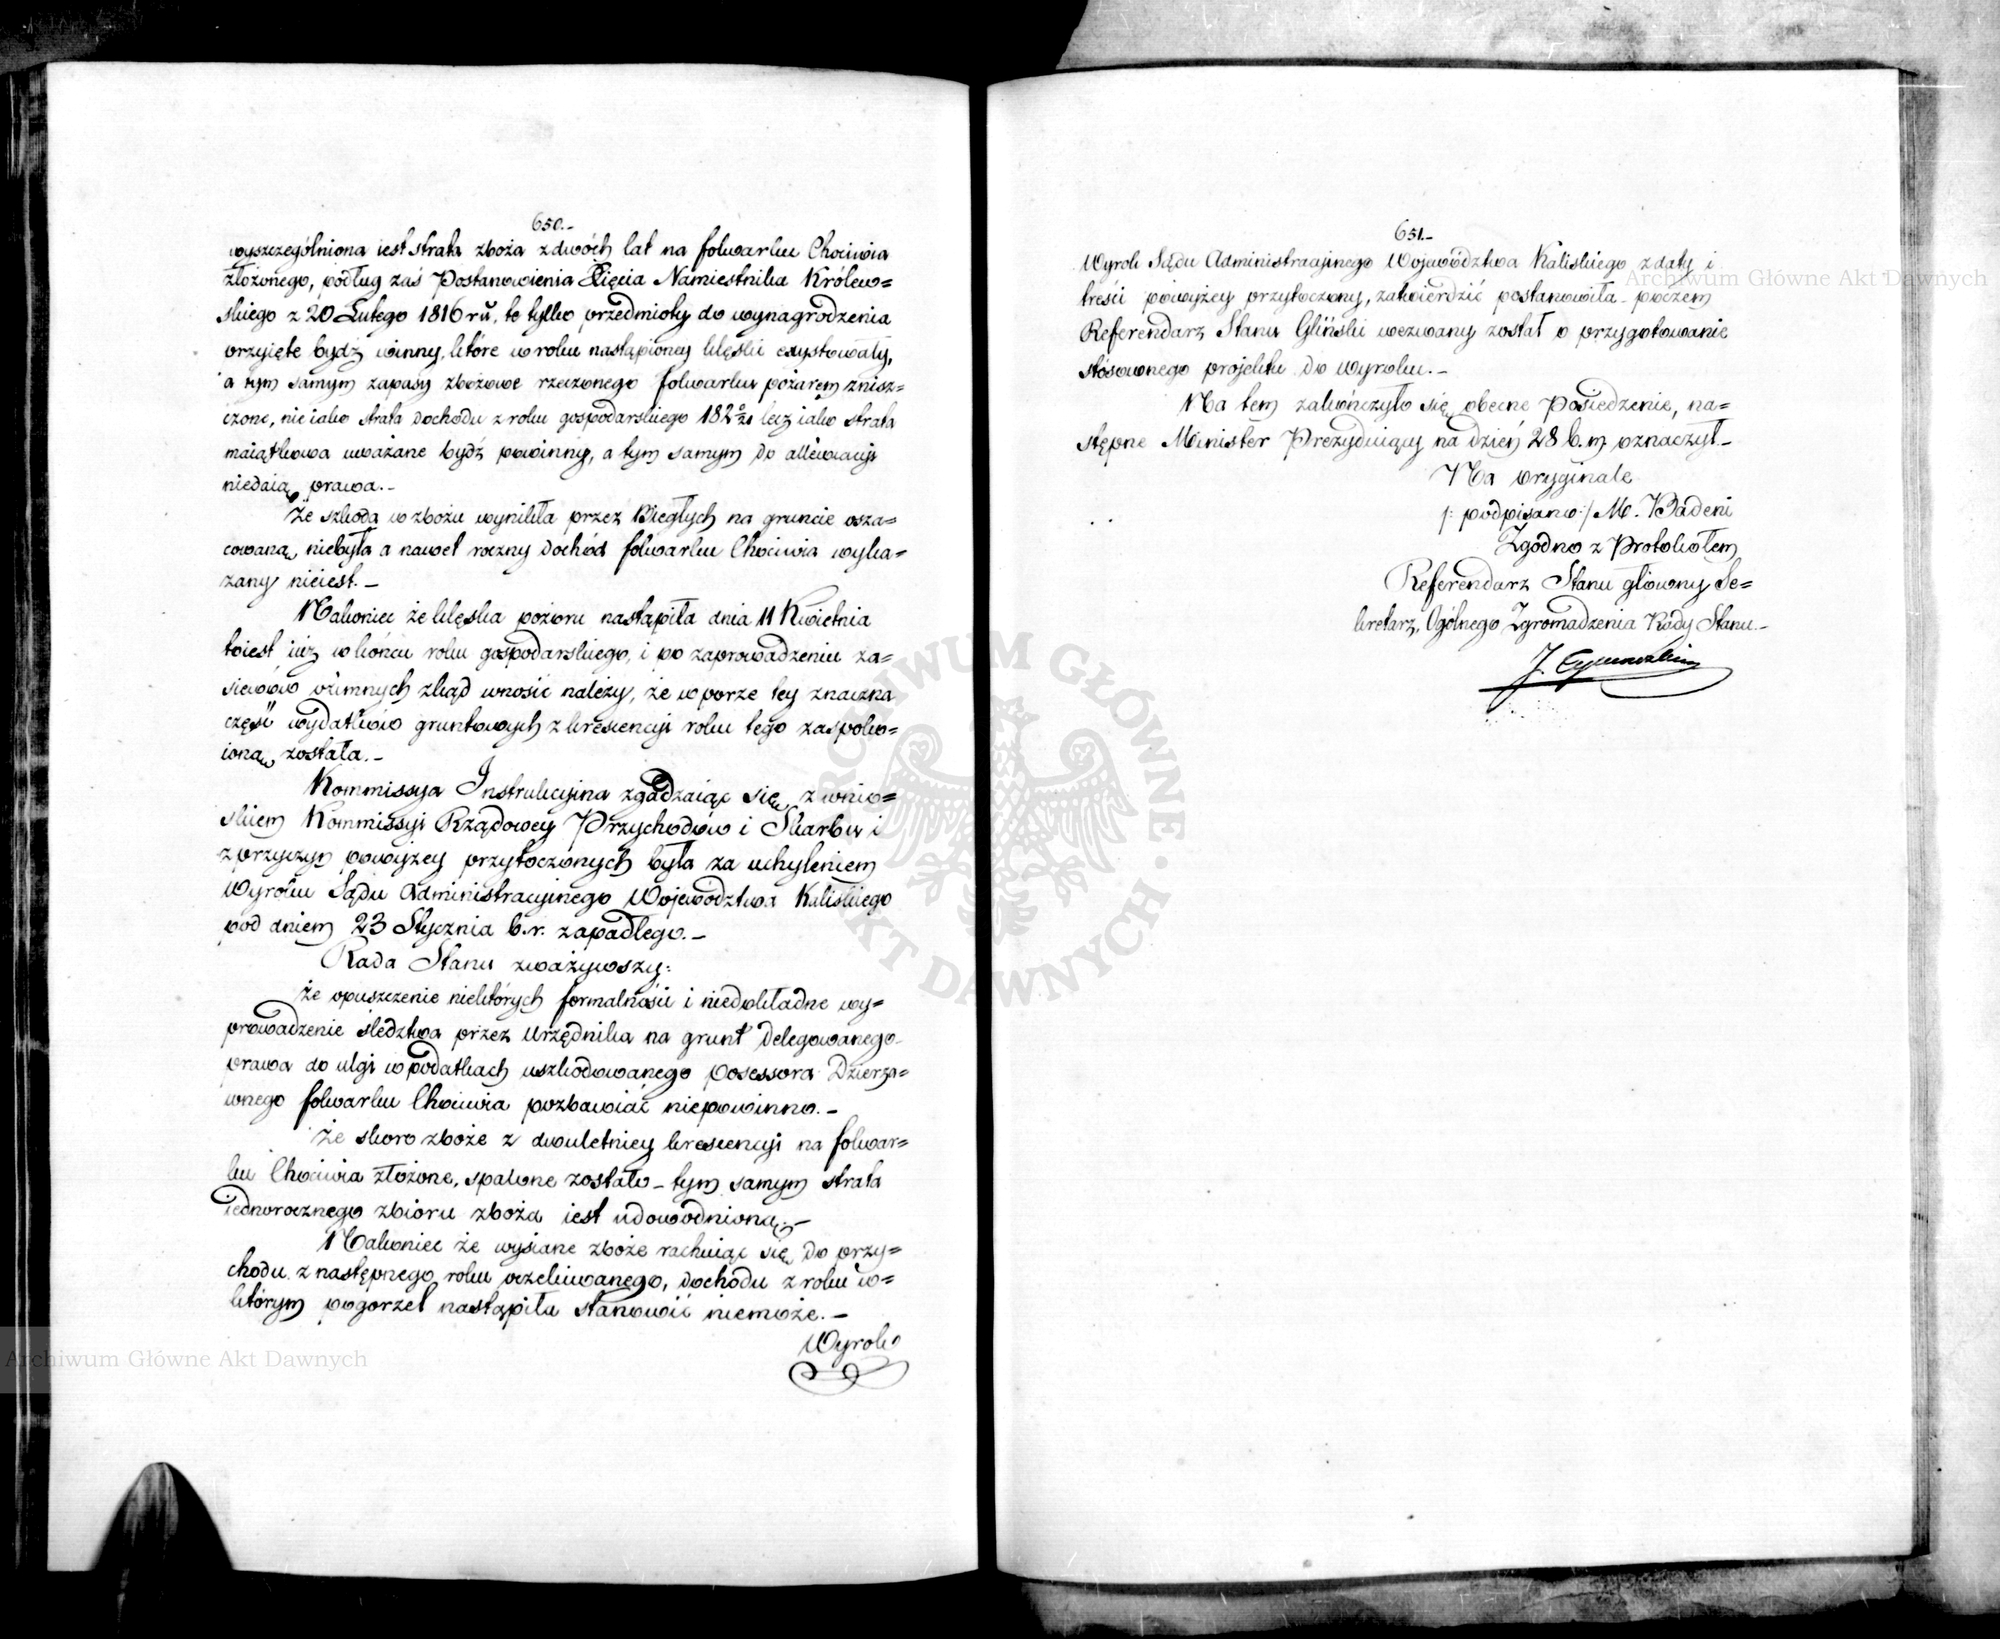 650.-
wyszczególniona iest strata zboża z dwóch lat na folwarku Chociwia
złożonego, podług zaś Postanowienia Xięcia Namiestnika Królew=
skiego z 20 Lutego 1816 ru, te tylko przedmioty do wynagrodzenia
przyięte bydź winny, które w roku nastąpioney klęski exystowały,
a tym samym zapasy zbożowe rzeczonego folwarku pożarem znisz=
czone, nie iako strata dochodu z roku gospodarskiego 1820/21 lecz iako strata
maiątkowa uważane bydź powinny, a tym samym do allewiacyi
niedaią prawa.-
Że szkoda w zbożu wynikła przez Biegłych na gruncie osza=
cowaną niebyła a nawet roczny dochód folwarku Chociwia wyka=
zany nieiest.-
Nakoniec że klęska pożaru nastąpiła dnia 11 Kwietnia
toiest iuż w końcu roku gospodarskiego, i po zaprowadzeniu za=
siewów ozimnych zkąd wnosić należy, że w porze tey znaczna
część wydatków gruntowych z krescencyi roku tego zaspoko=
ioną została.-
Kommissya Instrukcyina zgadzaiąc się z wnio=
skiem Kommissyi Rządowey Przychodów i Skarbu i
z przyczyn powyżey przytoczonych była za uchyleniem
Wyroku Sądu Administracyinego Województwa Kaliskiego
pod dniem 23 Stycznia b.r. zapadłego.-
Rada Stanu zważywszy:
Że opuszczenie niektórych formalności i niedokładne wy=
prowadzenie śledztwa przez Urzędnika na grunt delegowanego
prawa do ulgi w podatkach uszkodowanego possessora Dzierza=
wnego folwarku Chociwia pozbawiać niepowinno.-
Że skoro zboże z dwuletniey krescencyi na folwar=
ku Chociwia złożone, spalone zostało - tym samym strata
iednorocznego zbioru zboża iest udowodnioną;-
Nakoniec że wysiane zboże rachuiąc się do przy=
chodu z następnego roku oczekiwanego, dochodu z roku w=
którym pogorzel nastąpiła stanowić niemoże.-
Wyrok
651.-
Wyrok Sądu Administracyinego Województwa Kaliskiego z daty i
treści powyżey przytoczony, zatwierdzić postanowiła - poczem
Referendarz Stanu Gliński wezwany został o przygotowanie
stósownego projektu do wyroku.-
Na tem zakończyło się obecne Posiedzenie, na=
stępne Minister Prezyduiący na dzień 28 b.m. oznaczył.-
Na oryginale
/: podpisano:/ M. Badeni
Zgodno z Protokołem
Referendarz Stanu główny Se=
kretarz Ogólnego Zgromadzenia Rady Stanu.-
Archiwum Główne Akt Dawnych
Archiwum Główne Akt Dawnych
ARCHIWUM GŁÓWNE
AKT DAWNYCH